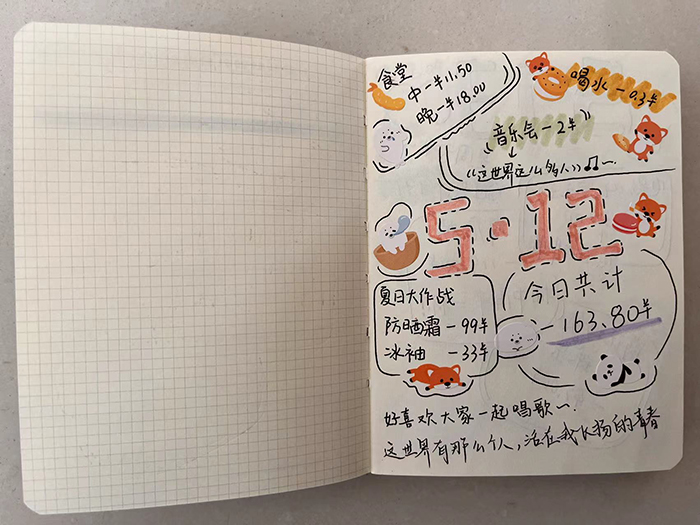 食堂
中-¥11.50
晚-¥18.00
喝水-0.3¥
音乐会-2¥
《这世界这么多人》♫~
5·12
夏日大作战
防晒霜-99¥
冰袖 -33¥
今日共计
-163.80¥
好喜欢大家一起唱歌~.
这世界有那么个人,活在我飞扬的青春